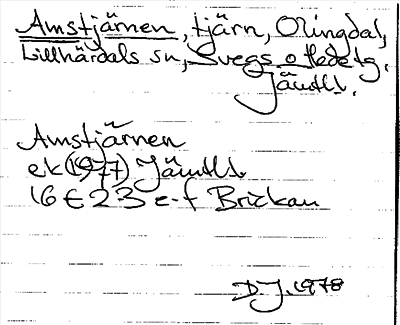 Amstjärnen, tjärn, Olingdal,
Lillhärdals sn, Svegs o Hede tg.
Jämtl.
Amstjärnen
ek (1977) Jämtl.
16 E 23 e-f Brickan
D.J. 1978